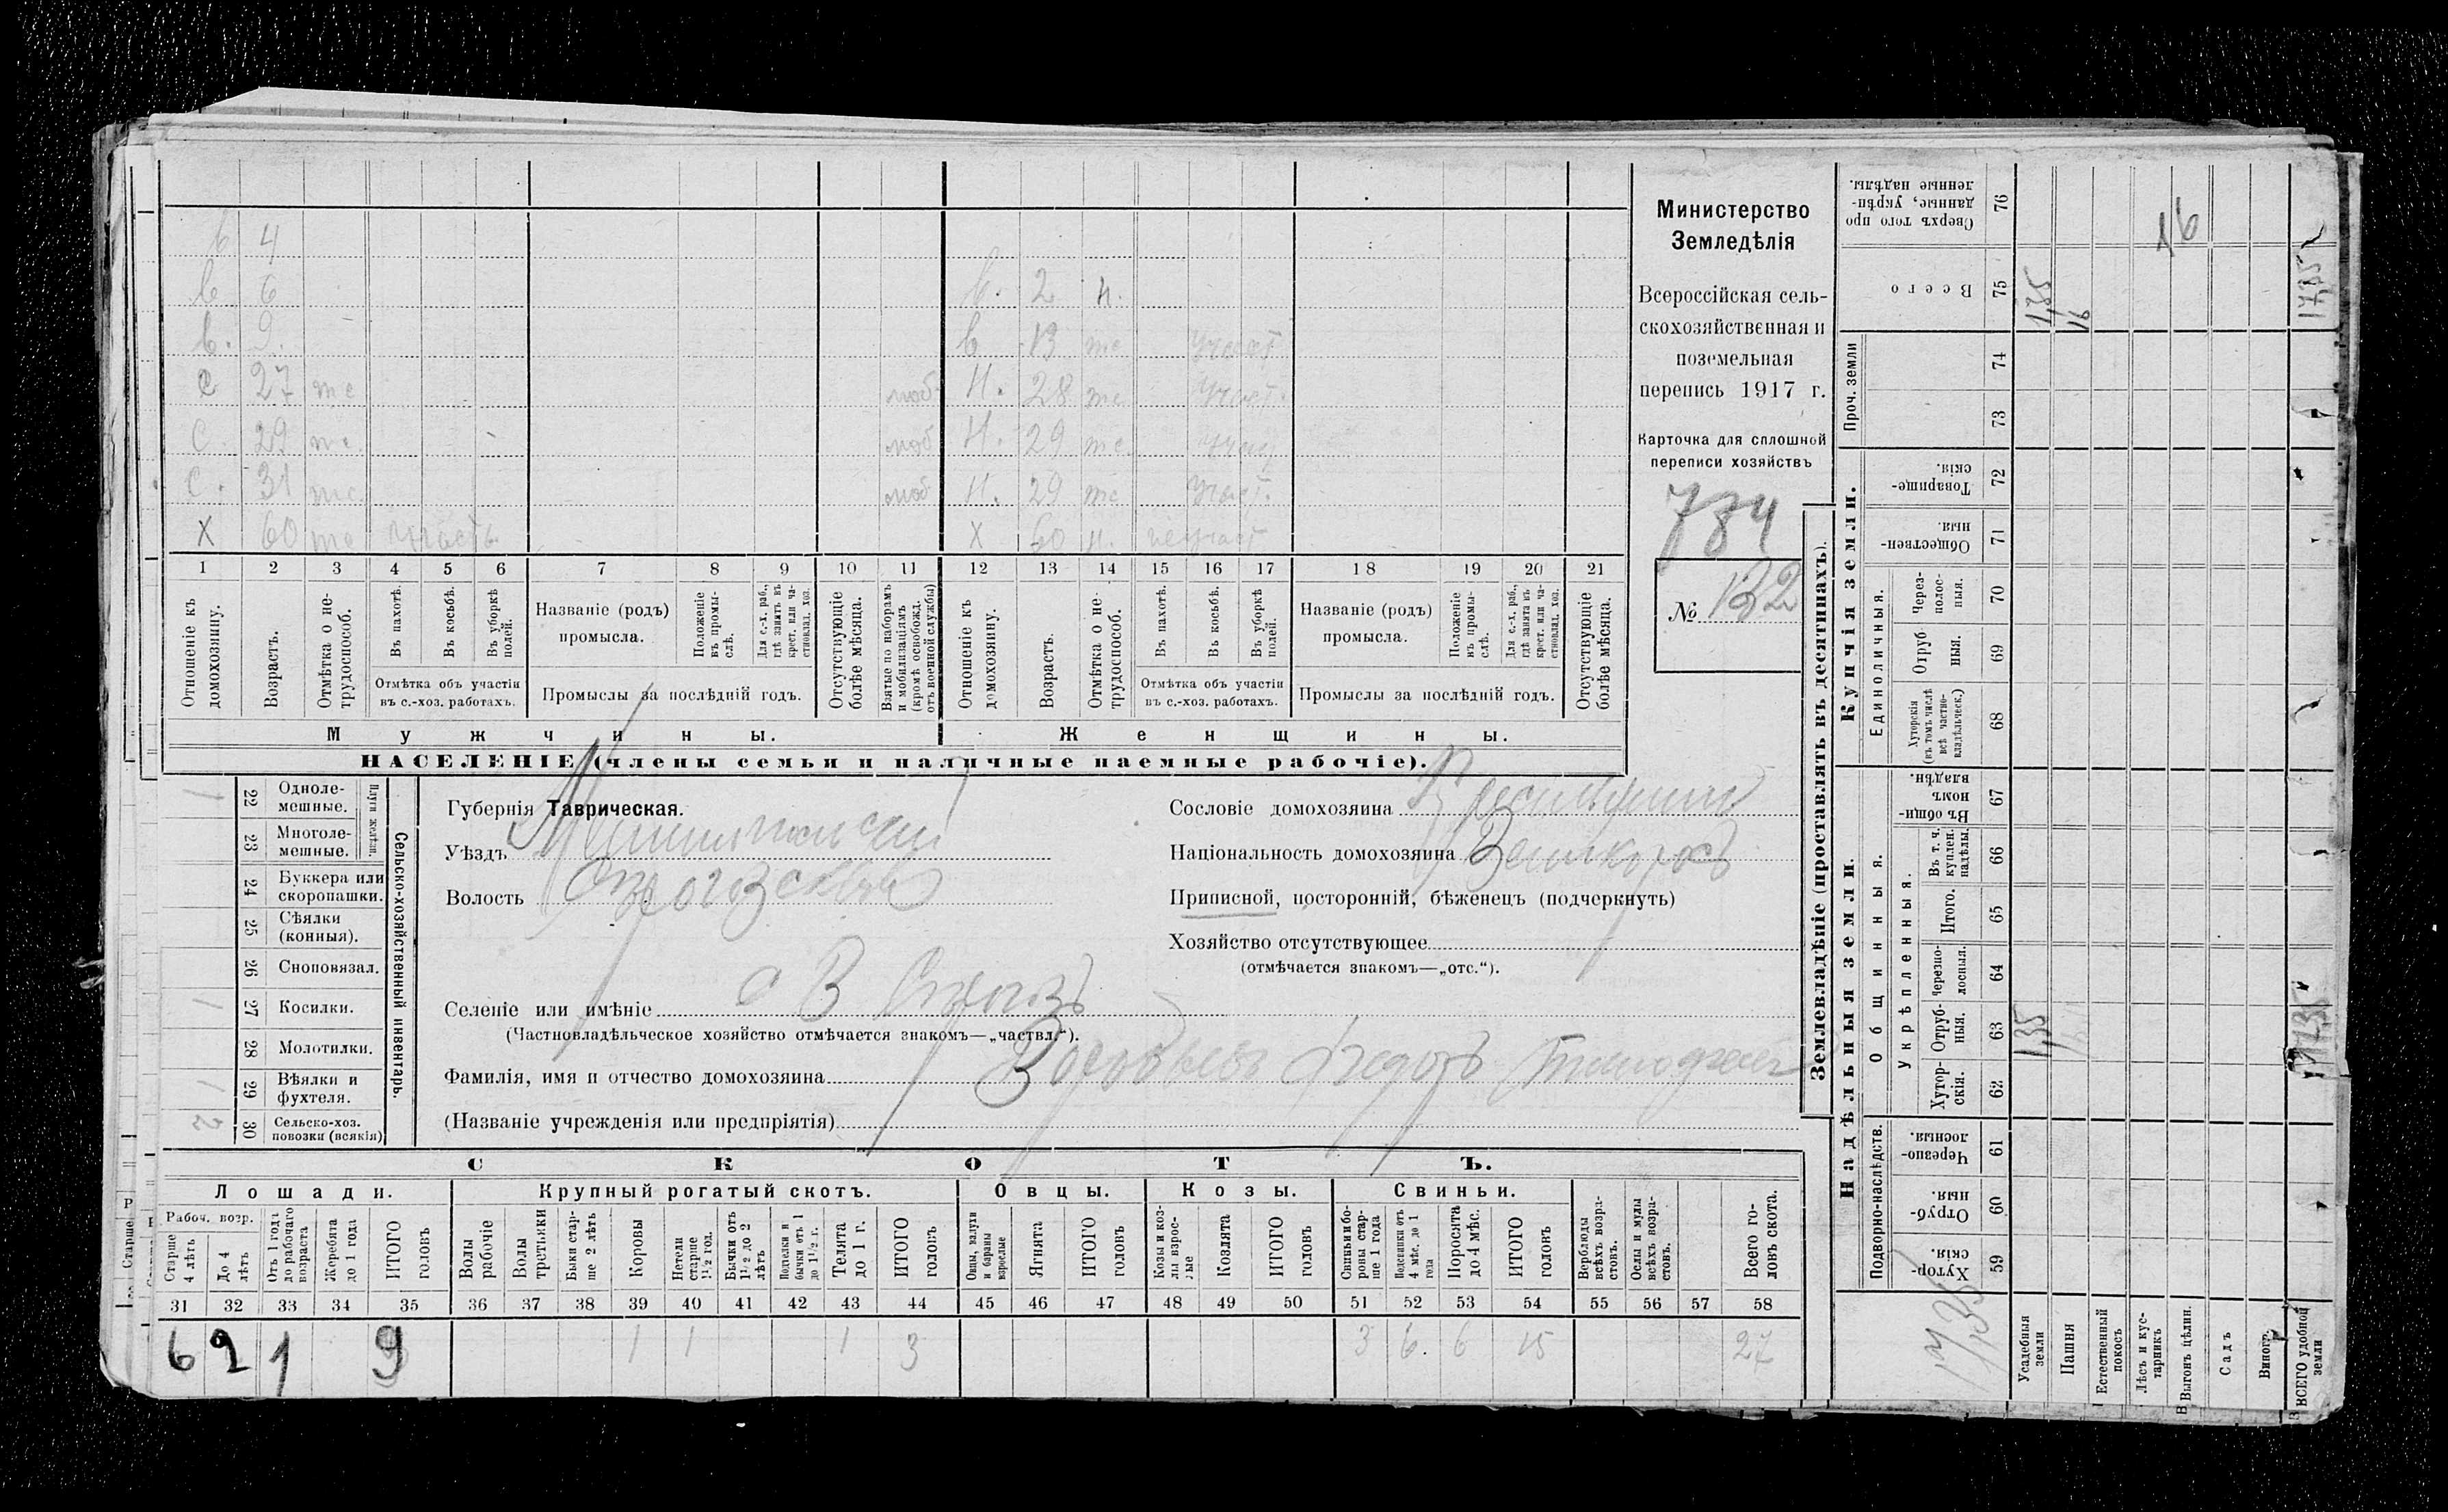 в 4
в 6 в. 2 н.
в. 9. в 13 те участ.
С 27 те моб Н. 28 те участ.
С. 29 те. моб Н. 29 те участ
С. 31 те. моб Н. 29 те участ.
X 60 те участв. X 60 н. неучаст
1 2 3 4 5 6 7 8 9 10 11 12 13 14 15 16 17 18 19 20 21
Отношеніе къ домохозяину.
Возрастъ.
Отмѣтка о нетрудоспособ.
Въ пахотѣ.
Въ косьбѣ.
Въ уборкѣ полей.
Отмѣтка объ участіи
въ с.-хоз. работахъ.
Названіе (родъ)
промысла.
Положеніе въ промыслѣ.
Для с.-х. раб., гдѣ занятъ въ крест. или частновлад. хоз.
Промыслы за послѣдній годъ.
Отсутствующіе болѣе мѣсяца.
Взятые по наборамъ и мобилизаціямъ (кромѣ освобожд. отъ военной службы)
Отношеніе къ домохозяину.
Возрастъ.
Отмѣтка о нетрудоспособ.
Въ пахотѣ.
Въ косьбѣ.
Въ уборкѣ полей.
Отмѣтка объ участіи
въ с.-хоз. работахъ.
Названіе (родъ)
промысла.
Положеніе въ промыслѣ.
Для с.-х. раб., гдѣ занята въ крест. или частновлад. хоз.
Промыслы за послѣдній годъ.
Отсутствующіе болѣе мѣсяца.
Мужчины. Женщины.
НАСЕЛЕНІЕ (члены семьи и наличные наемные рабочіе).
Министерство
Земледѣлія
Всероссійская сель-
скохозяйственная и
поземельная
перепись 1917 г.
Карточка для сплошной
переписи хозяйствъ
784
№ 132
Сельско-хозяйственный инвентарь.
Плуги желѣзн.
1 22 Одноле-
мешные.
23 Многоле-
мешные.
24 Буккера или
скоропашки.
25 Сѣялки
(конныя).
26 Сноповязал.
1 27 Косилки.
28 Молотилки.
1 29 Вѣялки и
фухтеля.
2 30 Сельско-хоз.
повозки (всякія)
Губернія Таврическая.
Уѣздъ Мелитопольскій
Волость
Селеніе или имѣніе с В
(Частновладѣльческое хозяйство отмѣчается знакомъ—„частвл.“).
Фамилія, имя и отчество домохозяина Воробьевъ Федоръ
(Названіе учрежденія или предпріятія)
Сословіе домохозяина
Національность домохозяина Великоросъ
Приписной, посторонній, бѣженецъ (подчеркнуть)
Хозяйство отсутствующее
(отмѣчается знакомъ—„отс.“).
СКОТЪ.
Лошади. Крупный рогатый скотъ. Овцы. Козы. Свиньи.
Рабоч. возр.
Старше 4 лѣтъ
До 4 лѣтъ
Отъ 1 года до рабочаго возраста
Жеребята до 1 года
ИТОГО головъ
Волы рабочіе
Волы третьяки
Быки старше 2 лѣтъ
Коровы
Нетели старше 1½ год.
Бычки отъ 1½ до 2 лѣтъ
Подтелки и бычки отъ 1 до 1½ г.
Телята до 1 г.
ИТОГО головъ
Овцы, валухи и бараны взрослые
Ягнята
ИТОГО головъ
Козы и козлы взрослые
Козлята
ИТОГО головъ
Свиньи и боровы старше 1 года
Подсвинки отъ 4 мѣс. до 1 года
Поросята до 4 мѣс.
ИТОГО головъ
Верблюды всѣхъ возрастовъ.
Ослы и мулы всѣхъ возрастовъ.
Всего головъ скота.
31 32 33 34 35 36 37 38 39 40 41 42 43 44 45 46 47 48 49 50 51 52 53 54 55 56 57 58
6 2 1 9 1 1 1 3 3 6. 6 15 27
Землевладѣніе (проставлять въ десятинахъ).
Надѣльныя земли. Купчія земли. Проч. земли
Подворно-наслѣдств. Общинныя. Единоличныя.
Укрѣпленныя.
59 Хуторскія.
60 Отрубныя.
61 Черезполосныя.
62 Хуторскія.
63 Отрубныя. 1,35
64 Черезполосныя.
65 Итого.
66 Въ т. ч. куплен. надѣлы.
67 Въ общин. владѣн.
68 Хуторскія (въ томъ числѣ всѣ частновладѣльческ.)
69 Отрубныя.
70 Черезполосныя.
71 Общественныя.
72 Товарищескія.
73
74
75 Всего 1,35 16 17,35
76 Сверхъ того проданные, укрѣпленные надѣлы. 16
Усадебныя земли
Пашня
Естественный покосъ
Лѣсъ и кустарникъ
Выгонъ цѣлин.
Садъ
Виногр.
ВСЕГО удобной земли